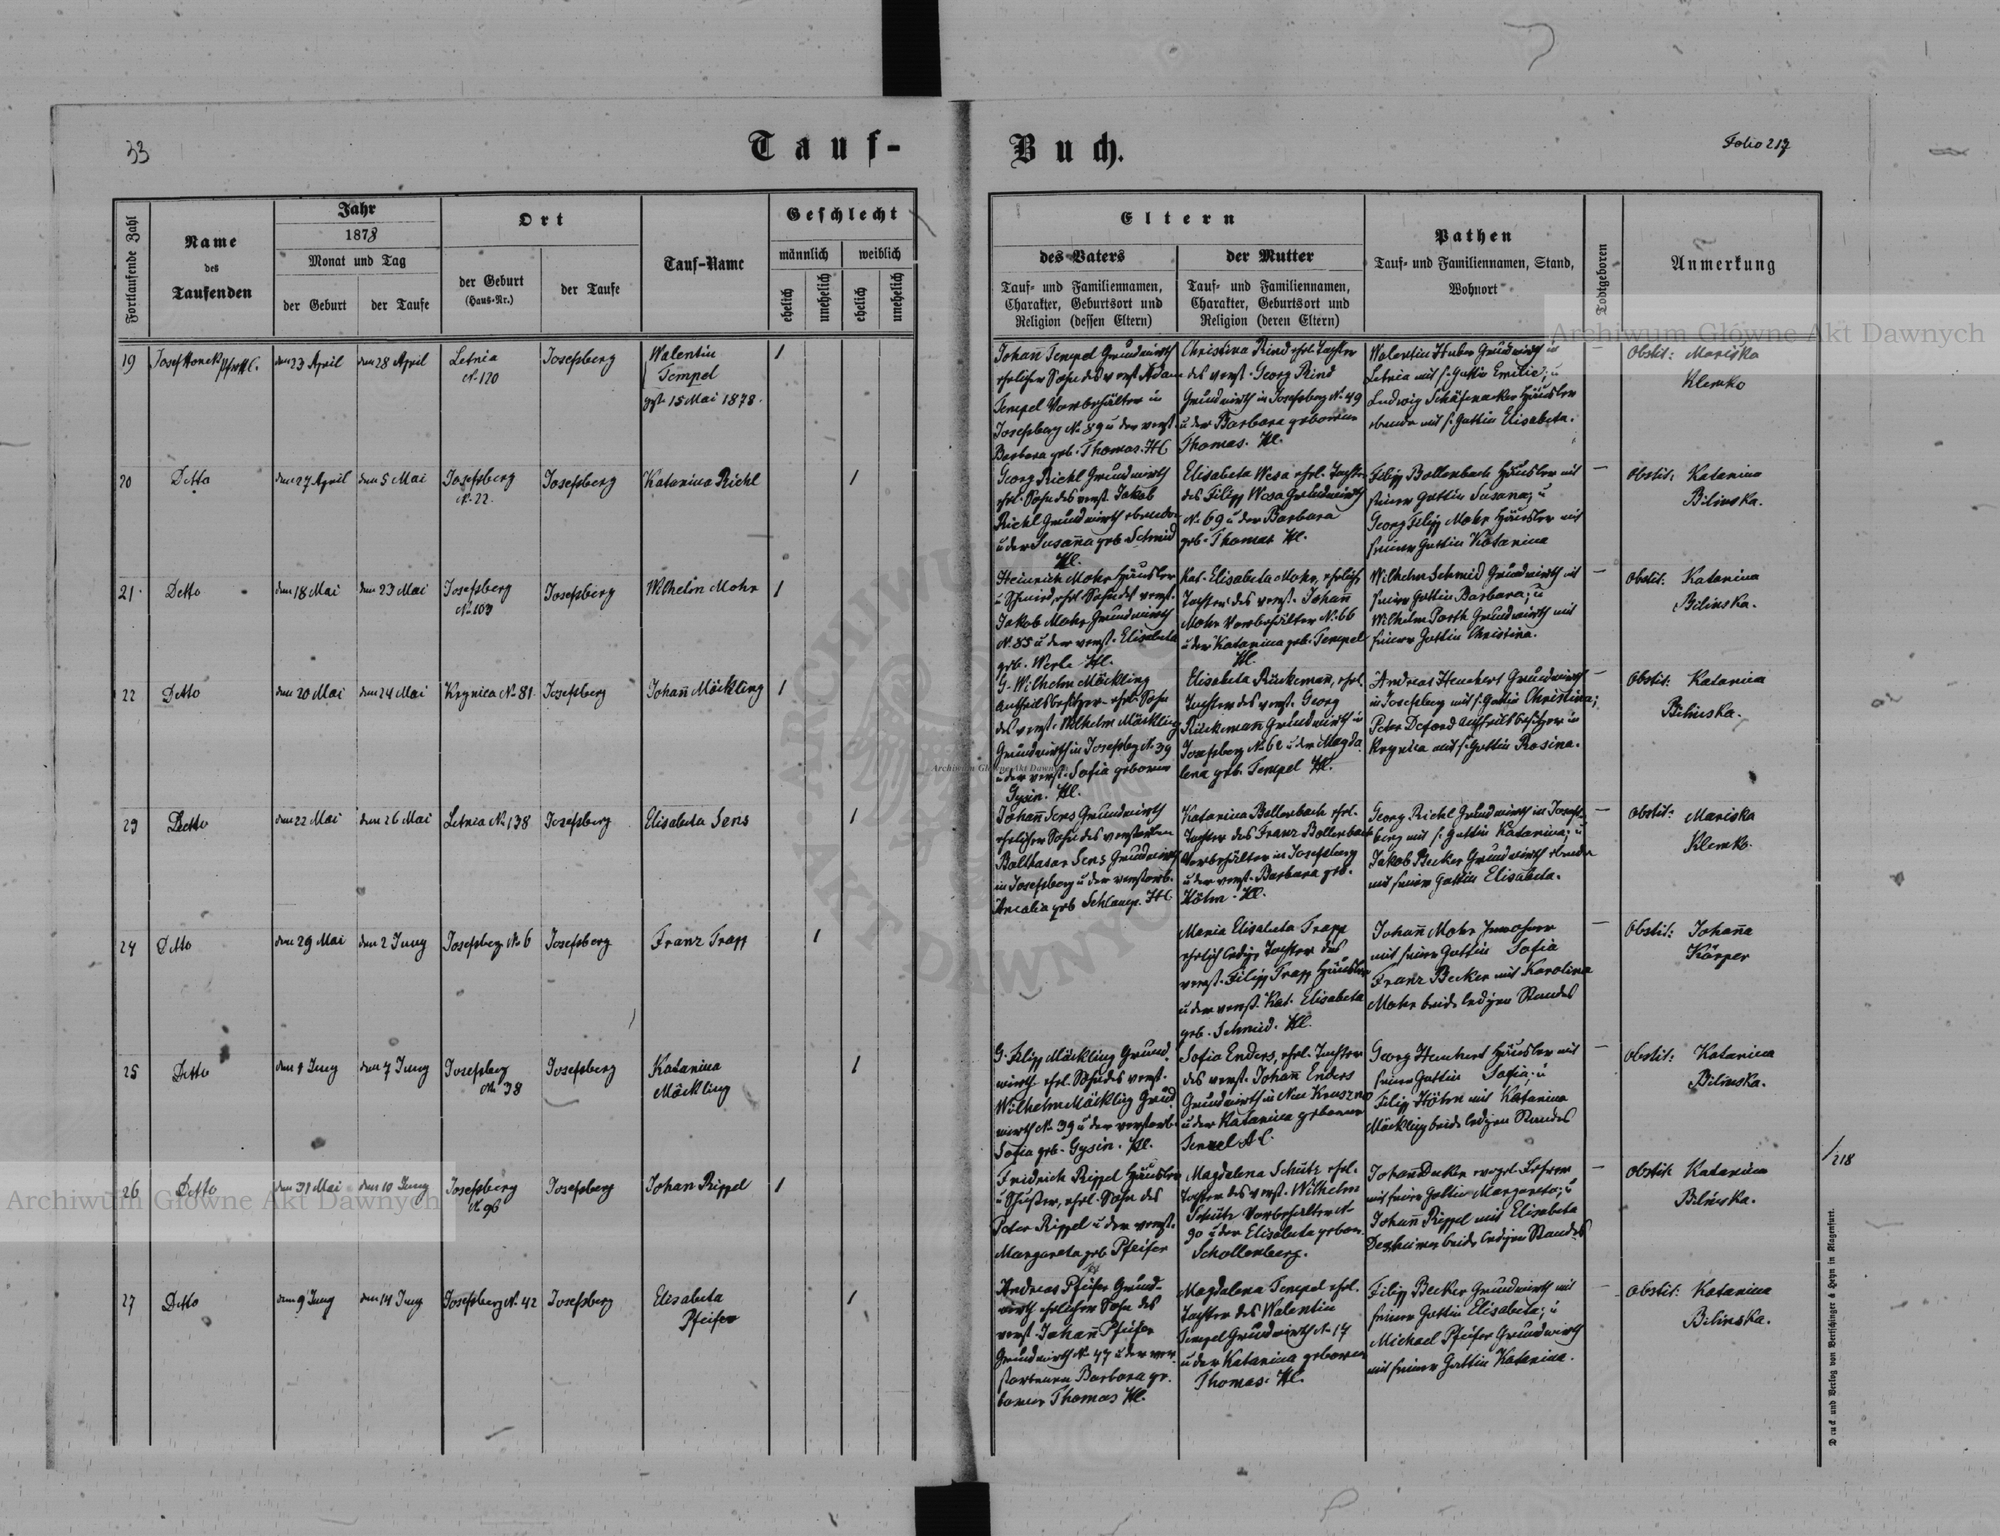 33
Tauf-
Buch.
Folio 217
Fortlaufende Zahl
Name
des
Taufenden
Jahr
1878
Monat und Tag
der Geburt
der Taufe
Ort
der Geburt
(Haus-Nr.)
der Taufe
Tauf-Name
Geschlecht
männlich
weiblich
ehelich
unehelich
ehelich
unehelich
Eltern
des Vaters
Tauf- und Familiennamen,
Charakter, Geburtsort und
Religion (dessen Eltern)
der Mutter
Tauf- und Familiennamen,
Charakter, Geburtsort und
Religion (deren Eltern)
Pathen
Tauf- und Familiennamen, Stand,
Wohnort
Todtgeboren
Anmerkung
19
Josef Honek
den 23 April
den 28 April
Letnia
No 120
Josefsberg
Walentin
Tempel
gest. 15 Mai 1878.
1
Johann Tempel Grundwirth
ehelicher Sohn des verst. Adam
Tempel Vorbehälter in
Josefsberg No 89 u der verst.
Barbara geb. Thomas. HC
Christina Rind ehel. Tochter
des verst. Georg Rind
Grundwirth in Josefsberg No 49
u der Barbara geborenen
Thomas. HC.
Walentin Huber Grundwirth in
Letnia mit s. Gattin Emilie; u
Ludwig Schäfenacker Häusler
ebenda mit s. Gattin Elisabeta.
—
Obstit: Mariska
Klemko
20
Detto
den 27 April
den 5 Mai
Josefsberg
No 22.
Josefsberg
Katarina Richl
1
Georg Richl Grundwirth
ehl. Sohn des verst. Jakob
Richl Grundwirth ebenda
u der Susanna geb. Schmid
HC.
Elisabeta Wesa ehel. Tochter
des Filipp Wesa Grundwirth
No 69 u der Barbara
geb. Thomas HC.
Filipp Bollenbach Häusler mit
seiner Gattin Susana; u
Georg Filipp Mohr Häusler mit
seiner Gattin Katarina
—
Obstit: Katarina
Bilinska.
21.
Detto
den 18 Mai
den 23 Mai
Josefsberg
No 103
Josefsberg
Wilhelm Mohr
1
Heinrich Mohr Häusler
u Schmied, ehel. Sohn des verst.
Jakob Mohr Grundwirth
No 85 u der verst. Elisabeta
geb. Werle HC.
Kat. Elisabeta Mohr, ehelich
Tochter des verst. Johann
Mohr Vorbehälter No 66
u der Katarina geb. Tempel
HC.
Wilhelm Schmid Grundwirth mit
seiner Gattin Barbara; u
Wilhelm Porth Grundwirth mit
seiner Gattin Christina.
—
Obstit. Katarina
Bilinska.
22
Detto
den 20 Mai
den 24 Mai
Krynica No 81
Josefsberg
Johann Möckling
1
G. Wilhelm Möckling
Antheilsbesitzer ehel. Sohn
des verst. Wilhelm Möckling
Grundwirth in Josefsberg No 39
u der verst. Sofia geborenen
Gysin. HC.
Elisabeta Rückemann, ehel.
Tochter des verst. Georg
Rückemann Grundwirth in
Josefsberg No 62 u der Magda
lena geb. Tempel HC.
Andreas Heuchert Grundwirth
in Josefsberg mit s. Gattin Christina;
Peter Deford Antheilbesitzer in
Krynica mit s. Gattin Rosina.
—
Obstit: Katarina
Bilinska.
23
Detto
den 22 Mai
den 26 Mai
Letnia No 138
Josefsberg
Elisabeta Sens
1
Johann Sens Grundwirth
ehelicher Sohn des verstorben
Balthasar Sens Grundwirth
in Josefsberg u der verstorb.
Amalia geb Schlamp. HC.
Katarina Bollenbach ehel.
Tochter des Franz Bollenbach
Vorbehälter in Josefsberg
u der verst. Barbara geb.
Höhn. HC.
Georg Richl Grundwirth in Josefs-
berg mit s. Gattin Katarina; u
Jakob Becker Grundwirth ebenda
mit seiner Gattin Elisabeta.
—
Obstit: Mariska
Klemko.
24
Detto
den 29 Mai
den 2 Juny
Josefsberg No 6
Josefsberg
Franz Trapp
1
Maria Elisabeta Trapp
ehelich ledige Tochter des
verst. Filipp Trapp Häusler
u der verst. Kat. Elisabeta
geb. Schmid. HC.
Johann Mohr Inwohner
mit seiner Gattin Sofia
Franz Becker mit Karolina
Mohr beide ledigen Standes
—
Obstit: Johanna
Körper
25
Detto
den 1 Juny
den 7 Juny
Josefsberg
No 38
Josefsberg
Katarina
Möckling
1
G. Filipp Möckling Grund
wirth ehel. Sohn des verst.
Wilhelm Möckling Grund
wirth No 39 u der verstorb.
Sofia geb. Gysin. HC.
Sofia Enders, ehel. Tochter
des verst. Johann Enders
Grundwirth in Neu Kruszno
u der Katarina geborenen
AC.
Georg Heuchert Häusler mit
seiner Gattin Sofia; u
Filipp Höhn mit Katarina
Möckling beide ledigen Standes
—
Obstit: Katarina
Bilinska.
26
Detto
den 31 Mai
den 10 Juny
Josefsberg
No 96
Josefsberg
Johan Rippel
1
Fridrich Rippel Häusler
u Schuster, ehel. Sohn des
Peter Rippel u der verst.
Margareta geb Pfeifer
Magdalena Schütz ehel.
Tochter des verst. Wilhelm
Schütz Vorbehälter No
90 u der Elisabeta geboren
Schollenberg.
Johann Decker evgel. Lehrer
mit seiner Gattin Margareta; u
Johann Rippel mit Elisabeta
Dexheimer beide ledigen Standes
—
Obstit Katarina
Bilinska.
27
Detto
den 9 Juny
den 14 Juny
Josefsberg No 42
Josefsberg
Elisabeta
Pfeifer
1
Andreas Pfeifer Grund-
wirth ehelicher Sohn des
verst. Johann Pfeifer
Grundwirth No 47 u der ver
storbenen Barbara ge
borenen Thomas HC.
Magdalena Tempel ehel.
Tochter des Walentin
Tempel Grundwirth No 17
u der Katarina geborenen
Thomas. HC.
Filipp Becker Grundwirth mit
seiner Gattin Elisabeta; u
Michael Pfeifer Grundwirth
mit seiner Gattin Katarina.
—
Obstit: Katarina
Bilinska.
/218
Druck und Verlag von Bertschinger & Heyn in Klagenfurt.
Archiwum Główne Akt Dawnych
Archiwum Główne Akt Dawnych
Archiwum Główne Akt Dawnych